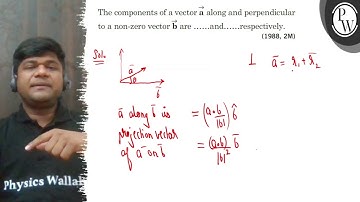 The components of a vector a⃗ along and perpendicular
to a non-zero vector b⃗ are ......and......respectively.
(1988, 2M)
PW
Soln.
a̅
θ
b̅
⊥ a̅ = r̅₁ + r̅₂
a̅ along b̅ is = (a•b/|b|) b̂
projection vector
of a̅ on b̅ = (a•b)/|b|² b̅
Physics Wallah